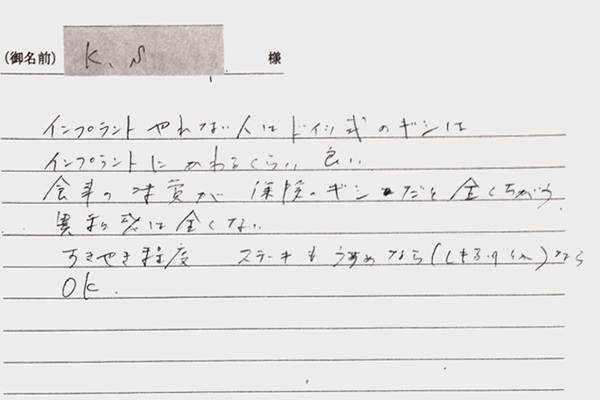 (御名前) K、S 様
インプラントやれない人はドイツ式のギシは
インプラントにかわるくらい良い
食事の味質が保険のギシだと全くちがう
異和感は全くない
すきやき程度 ステーキもうすめなら()なら
OK.